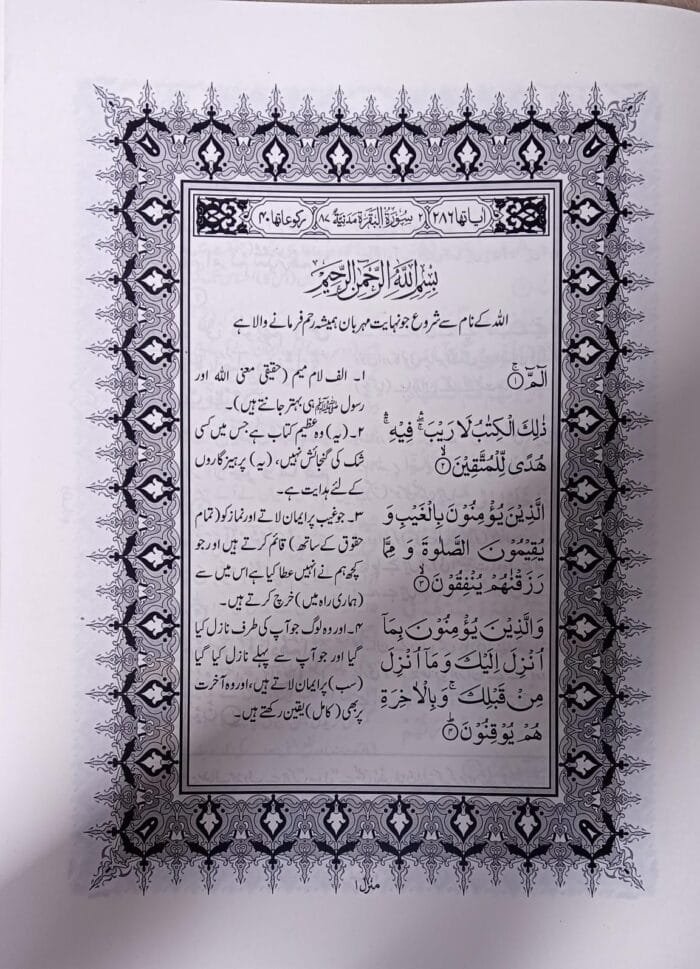 اٰیاتھا ۲۸۶
۲ سُوْرَةُ الْبَقَرَةِ مَدَنِیَّةٌ ۸۷
رکوعاتھا ۴۰
بِسْمِ اللّٰهِ الرَّحْمٰنِ الرَّحِیْمِ
اللہ کے نام سے شروع جو نہایت مہربان ہمیشہ رحم فرمانے والا ہے
الٓمّٓ ۚ﴿۱﴾
ذٰلِكَ الْكِتٰبُ لَا رَیْبَ ۛۚ فِیْهِ ۛۚ
هُدًی لِّلْمُتَّقِیْنَ ۙ﴿۲﴾
الَّذِیْنَ یُؤْمِنُوْنَ بِالْغَیْبِ وَ
یُقِیْمُوْنَ الصَّلٰوةَ وَ مِمَّا
رَزَقْنٰهُمْ یُنْفِقُوْنَ ۙ﴿۳﴾
وَالَّذِیْنَ یُؤْمِنُوْنَ بِمَاۤ
اُنْزِلَ اِلَیْكَ وَ مَاۤ اُنْزِلَ
مِنْ قَبْلِكَ ۚ وَبِالْاٰخِرَةِ
هُمْ یُوْقِنُوْنَ ؕ﴿۴﴾
۱۔ الف لام میم (حقیقی معنی اللہ اور
رسول ﷺ ہی بہتر جانتے ہیں)۔
۲۔ (یہ) وہ عظیم کتاب ہے جس میں کسی
شک کی گنجائش نہیں، (یہ) پرہیزگاروں
کے لئے ہدایت ہے۔
۳۔ جو غیب پر ایمان لاتے اور نماز کو (تمام
حقوق کے ساتھ) قائم کرتے ہیں اور جو
کچھ ہم نے انہیں عطا کیا ہے اس میں سے
(ہماری راہ میں) خرچ کرتے ہیں۔
۴۔ اور وہ لوگ جو آپ کی طرف نازل کیا
گیا اور جو آپ سے پہلے نازل کیا گیا
(سب) پر ایمان لاتے ہیں، اور وہ آخرت
پر بھی (کامل) یقین رکھتے ہیں۔
منزل ۱